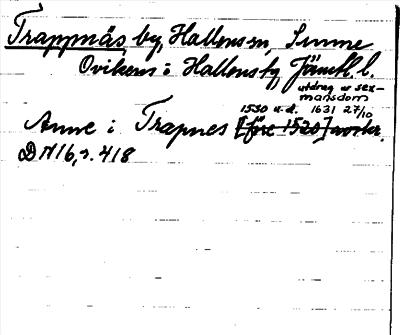 Trappnäs, by, Hallens sn, Sunne
Ovikens o Hallens tg Jämtl. l.
utdrag ur sex-
mansdom
1530 u. d. 1631 27/10
Anne i Trapnes [före 1520] avskr.
DN 16, s. 418